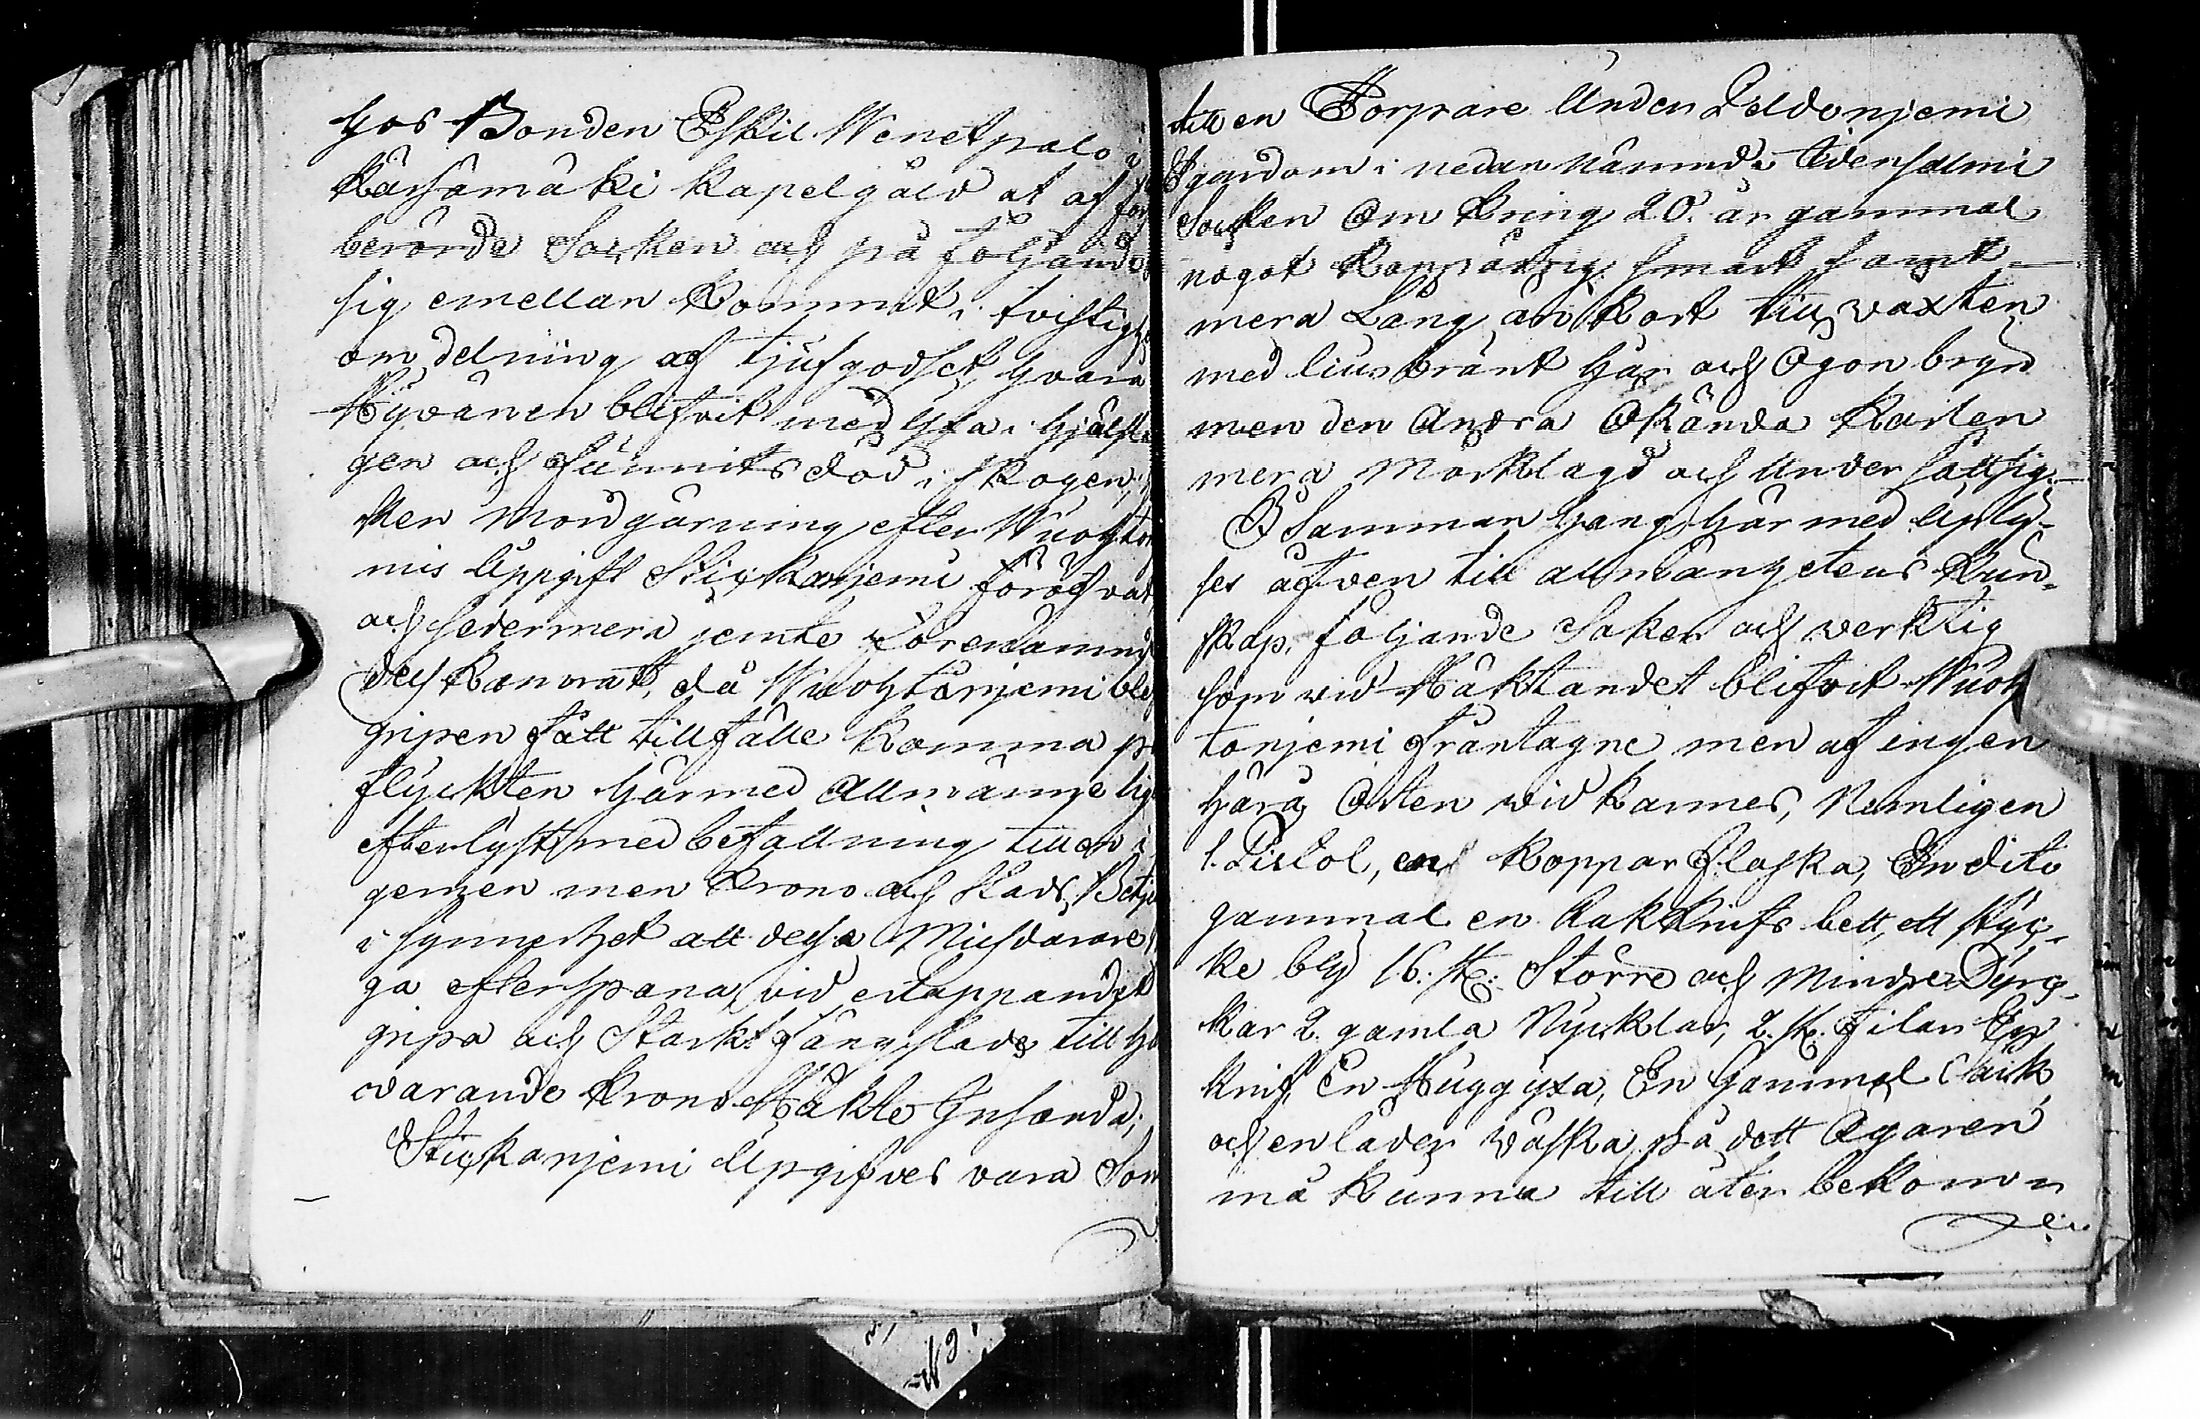 hos Bonden Eskil Wenetpalo i
Kärsämäki Kapelgäld at af för
berörde Socken och på följande
sig emellan kommit i tvistighe
om delning af tjufgodset hvara
Hyvänen blifvit med yxa ihjälsla
gen och funnits död i skogen,
ken mordgärning efter Wuohto
mis Uppgift Stickanjemi föröfvat
och sedermera jemte
des kamrat, då Wuohtonjemi blef
gripen fått tillfälle komma på
flyckten härmed allmänneligen
efterlyst med befallning till en i
gemen men Krono och Stads Betje
i synnerhet att dessa Missdådare
ga efterspana vid ertappandet
gripa och Starkt fängslade till h
varande Krono Häkte Insända;
Stickanjemi Upgifves vara Son
till en Torpare Under
gårdom i nedannämnde Idensalmi
Socken Om kring 20. år gammal
något Kopparrig smart samt
mera Lång än Kort till växten
med liusbrunt hår och Ögon bryn
men den Andra Okända Karlen
mera Mörklagd och Undersättsig.
I Samman hang här med Uply-
ses äfven till allmänhetens Kun-
skap, följande Saker och verktig
som vid Häktandet blifvit Wuoh
tonjemi fråntagne men af ingen
härå Orten vid kännes, Nemligen
1. Pistol, en Koppar Flaska, En dito
gammal en Rakknifs bett, ett styc-
ke bly 16. st: Större och Mindre Dyrc-
kar 2. gamla Nycklar, 2. st. filar En
knif, En Huggyxa, En Gammal Säck,
och en läder Väska på dett Ägaren
må kunna till åter bekomm